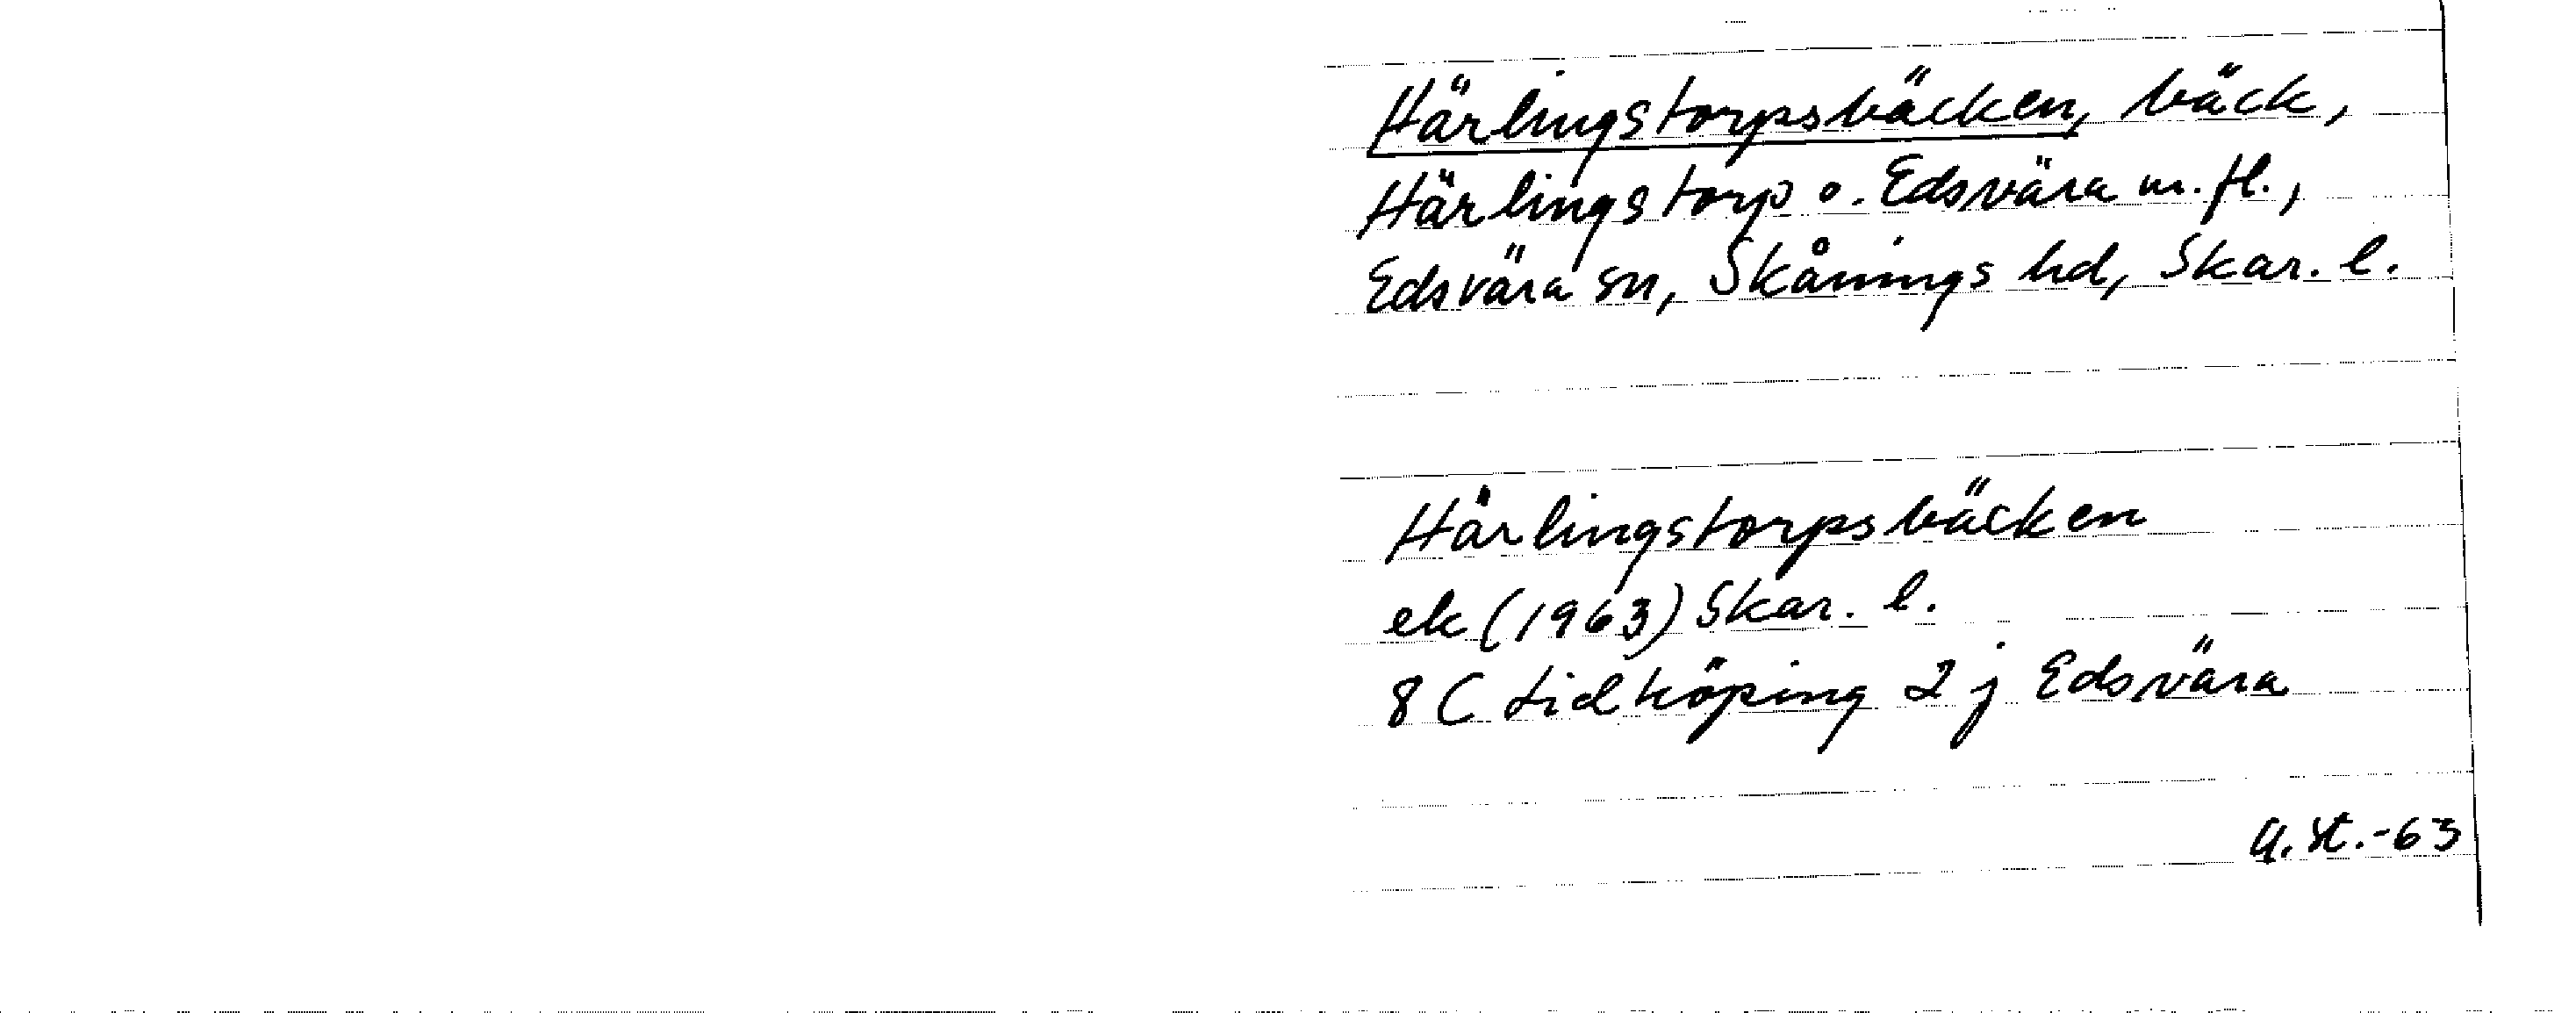 Härlingstorpsbäcken, bäck,
Härlingstorp o. Edsvära m. fl.,
Edsvära sn, Skånings hd, Skar. l.
Härlingstorpsbäcken
ek (1963) Skar. l.
8 C Lidköping 2 j Edsvära
G. St. -63